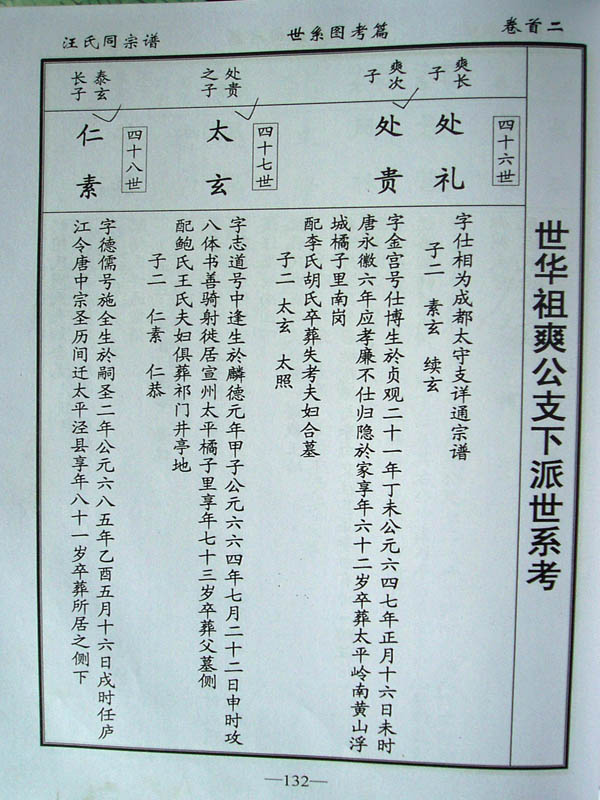 汪氏同宗谱
世系图考篇
卷首二
世华祖爽公支下派世系考
四十六世
爽长
子
处礼
字仕相为成都太守支详通宗谱
子二 素玄 续玄
爽次
子
处贵
字金宫号仕博生於贞观二十一年丁未公元六四七年正月十六日未时
唐永徽六年应孝廉不仕归隐於家享年六十二岁卒葬太平岭南黄山浮
城橘子里南岗
配李氏胡氏卒葬失考夫妇合墓
子二 太玄 太照
四十七世
处贵
之子
太玄
字志道号中逢生於麟德元年甲子公元六六四年七月二十二日申时攻
八体书善骑射徙居宣州太平橘子里享年七十三岁卒葬父墓侧
配鲍氏王氏夫妇俱葬祁门井亭地
子二 仁素 仁恭
四十八世
泰玄
长子
仁素
字德儒号施全生於嗣圣二年公元六八五年乙酉五月十六日戌时任庐
江令唐中宗圣历间迁太平泾县享年八十一岁卒葬所居之侧下
—132—